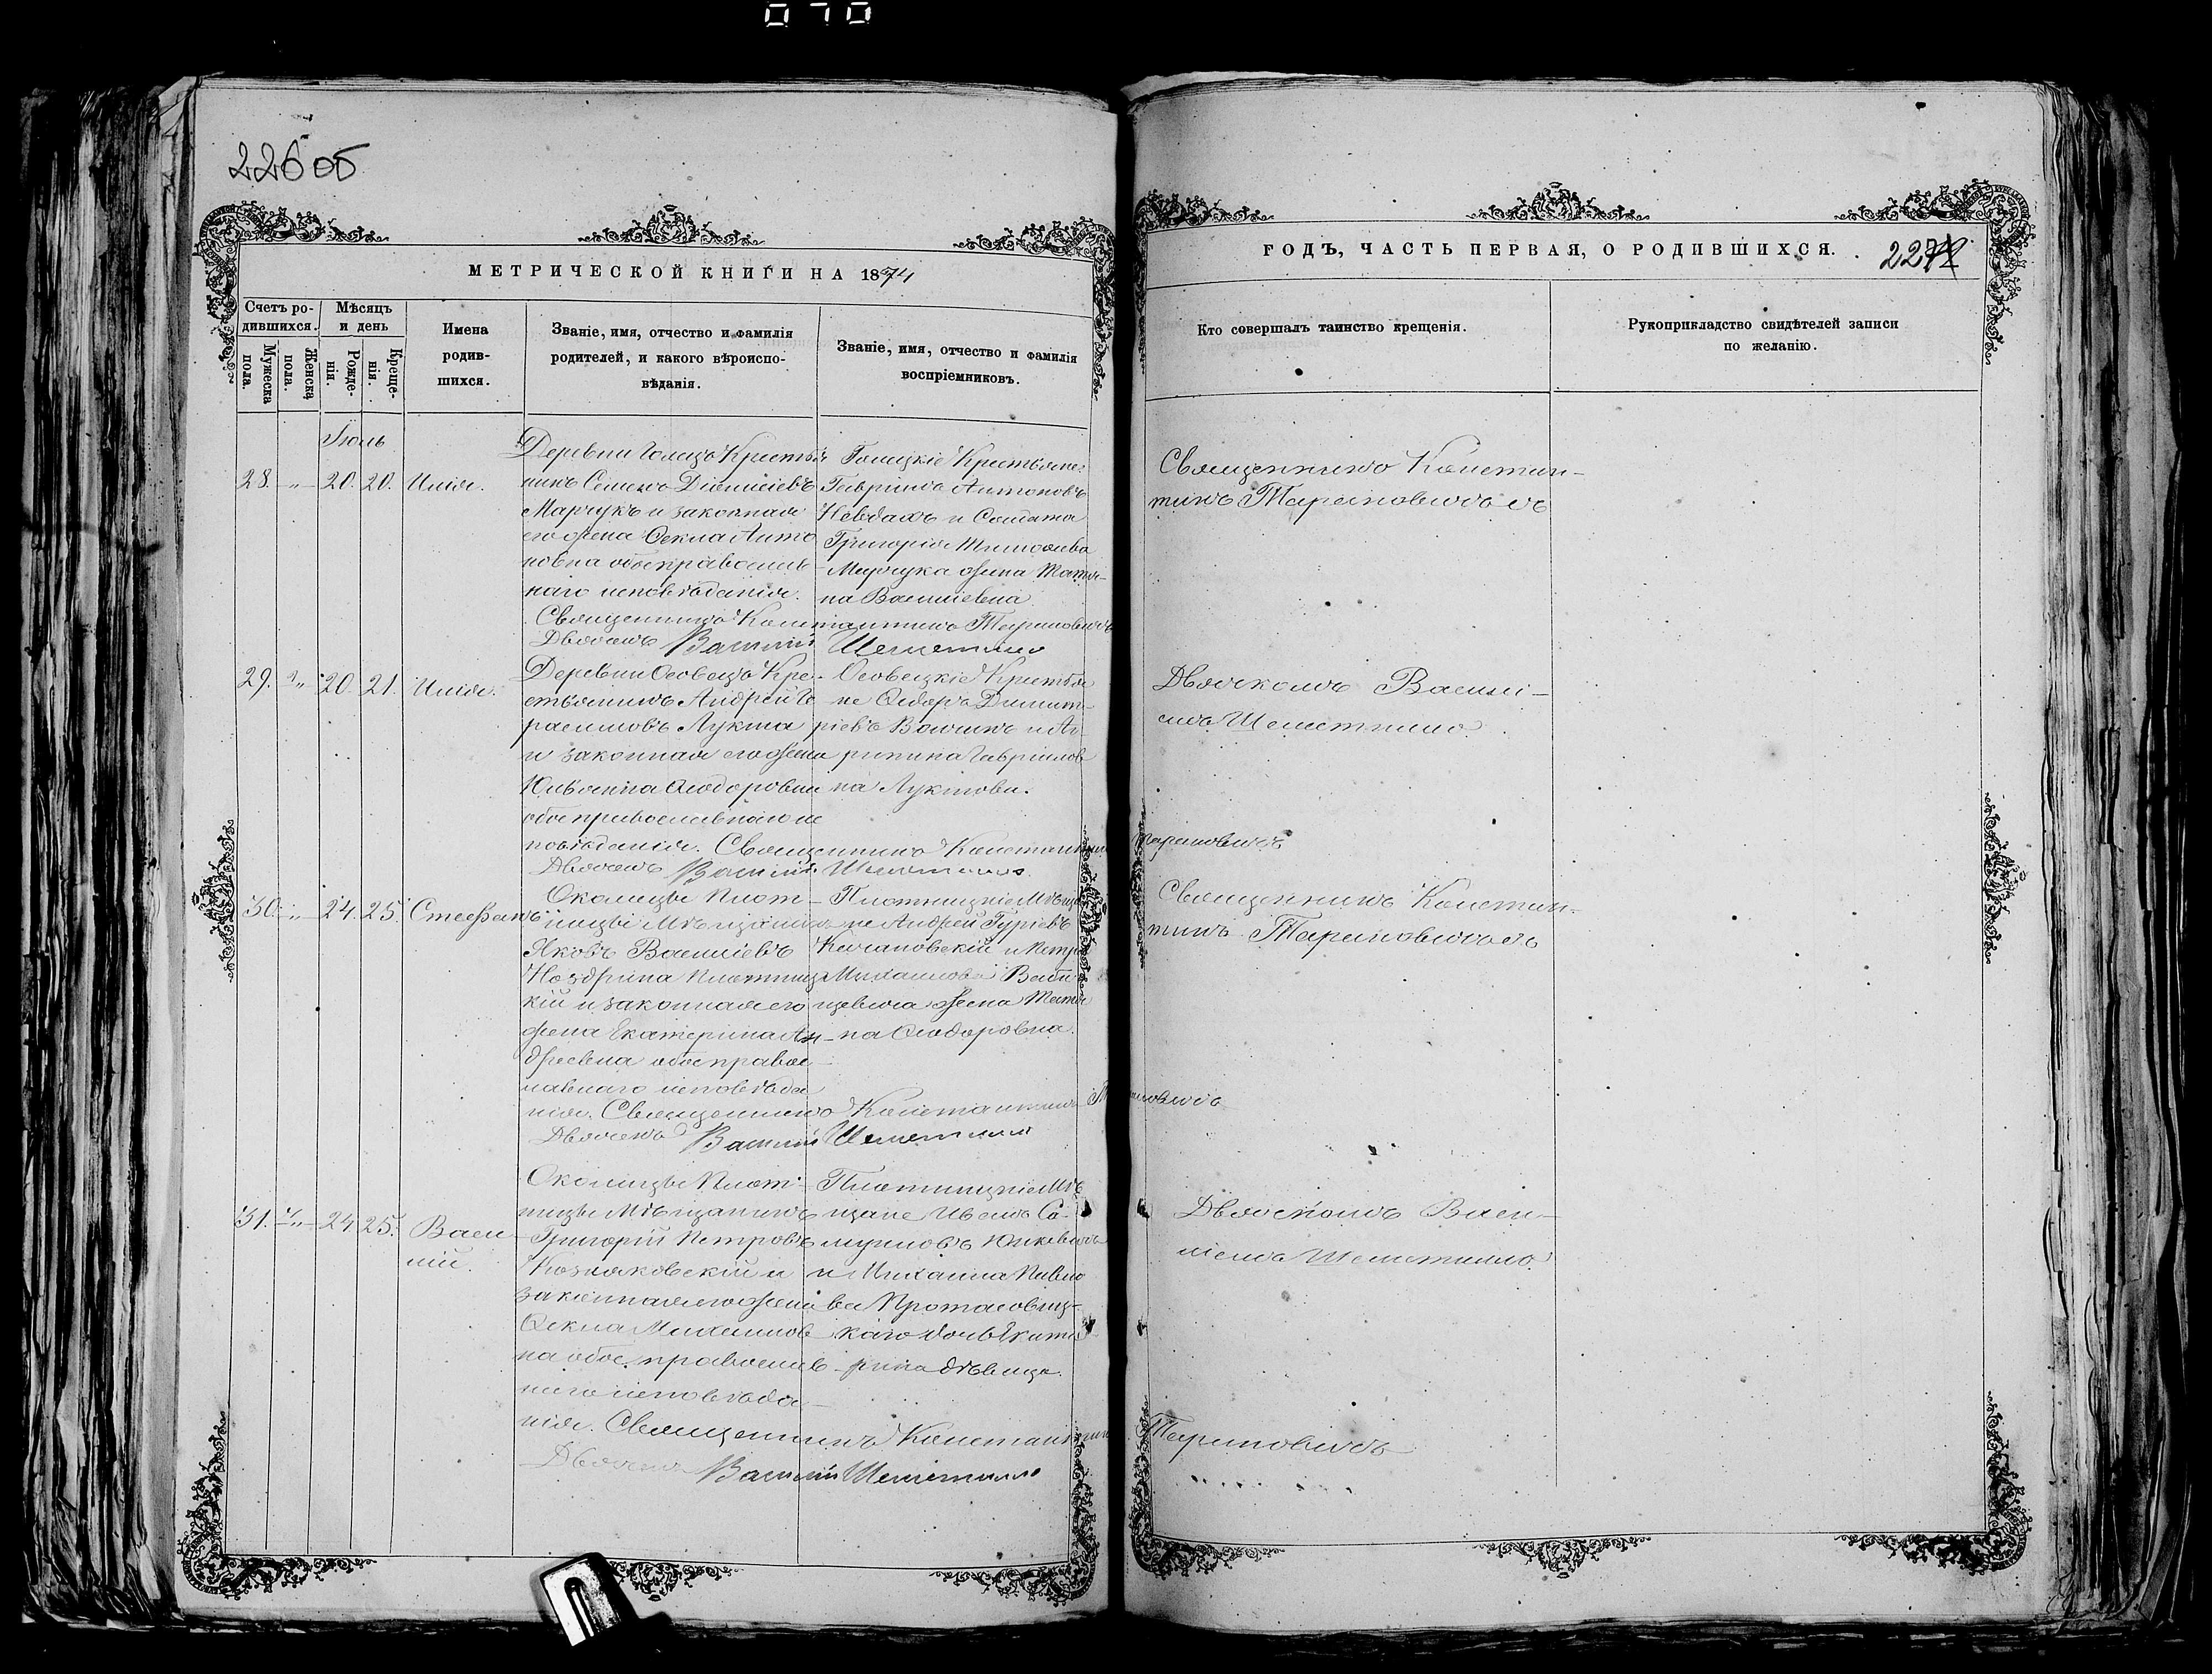 070
226 об
МЕТРИЧЕСКОЙ КНИГИ НА 1874
ГОДЪ, ЧАСТЬ ПЕРВАЯ, О РОДИВШИХСЯ.
227
Счетъ ро-
дившихся.
Мужеска
пола.
Женска
пола.
Мѣсяцъ
и день
Рожде-
нія.
Креще-
нія.
Имена
родив-
шихся.
Званіе, имя, отчество и фамилія
родителей, и какого вѣроиспо-
вѣданія.
Званіе, имя, отчество и фамилія
воспріемниковъ.
Кто совершалъ таинство крещенія.
Рукоприкладство свидѣтелей записи
по желанію.
Іюль
28. „ 20. 20. Илія.
Деревни Голецъ Крестья
нинъ Семенъ Діонисіевъ
Марчукъ и законная
его жена Ѳекла Анто
новна обое православ
наго исповѣданія.
Голецкіе Крестьяне:
Гавріилъ Антоновъ
Невдахъ и Солдата
Григорія
Марчука жена Татья-
на Васильевна
Священникъ Константинъ Тарановичъ
Дьячекъ Василій
Священникъ Констан-
тинъ Тарановичъ съ
29. „ 20. 21. Илія.
Деревни Осовецъ Кре-
стьянинъ Андрей Ге
расимовъ Лукша
и законная его жена
Юліанія Ѳеодоровна
обое православнаго ис
повѣданія. Священникъ Константинъ
Тарановичъ
Дьячекъ Василій
Осовецкіе Крестья
не Ѳедоръ Димит-
ріевъ и Аг-
рипина Гавріилов
на Лукшова.
Дьячкомъ Васи-
30. „ 24. 25. Стефанъ
Околицы Плот-
ницы Мѣщанинъ
Яковъ Василіевъ
Ноздрина Плотниц
кій и законная его
жена Екатерина Ан-
дреевна обое правос-
лавнаго исповѣда
нія. Священникъ Константинъ Тарановичъ
Дьячекъ Василій
Плотницкіе Мѣща
не Андрей Гуріевъ
Качановскій и Петра
Михаилова
жена Татья
на Ѳеодоровна.
Священникъ Констан-
тинъ Тарановичъ съ
31. „ 24 25. Васи-
лій.
Околицы Плот-
ницы Мѣщанинъ
Григорій Петровъ
Козляковскій и
законная его жена
Ѳекла Михаилов-
на обое православ-
наго исповѣда-
нія. Священникъ Константинъ
Тарановичъ
Дьячекъ Василій
Плотницкіе Мѣ
щане Иванъ Са-
муиловъ Юшкевичъ
и Михаила Павло
ва Протасовиц-
каго дочь Екате-
рина дѣвица.
Дьячкомъ Васи-
ліемъ